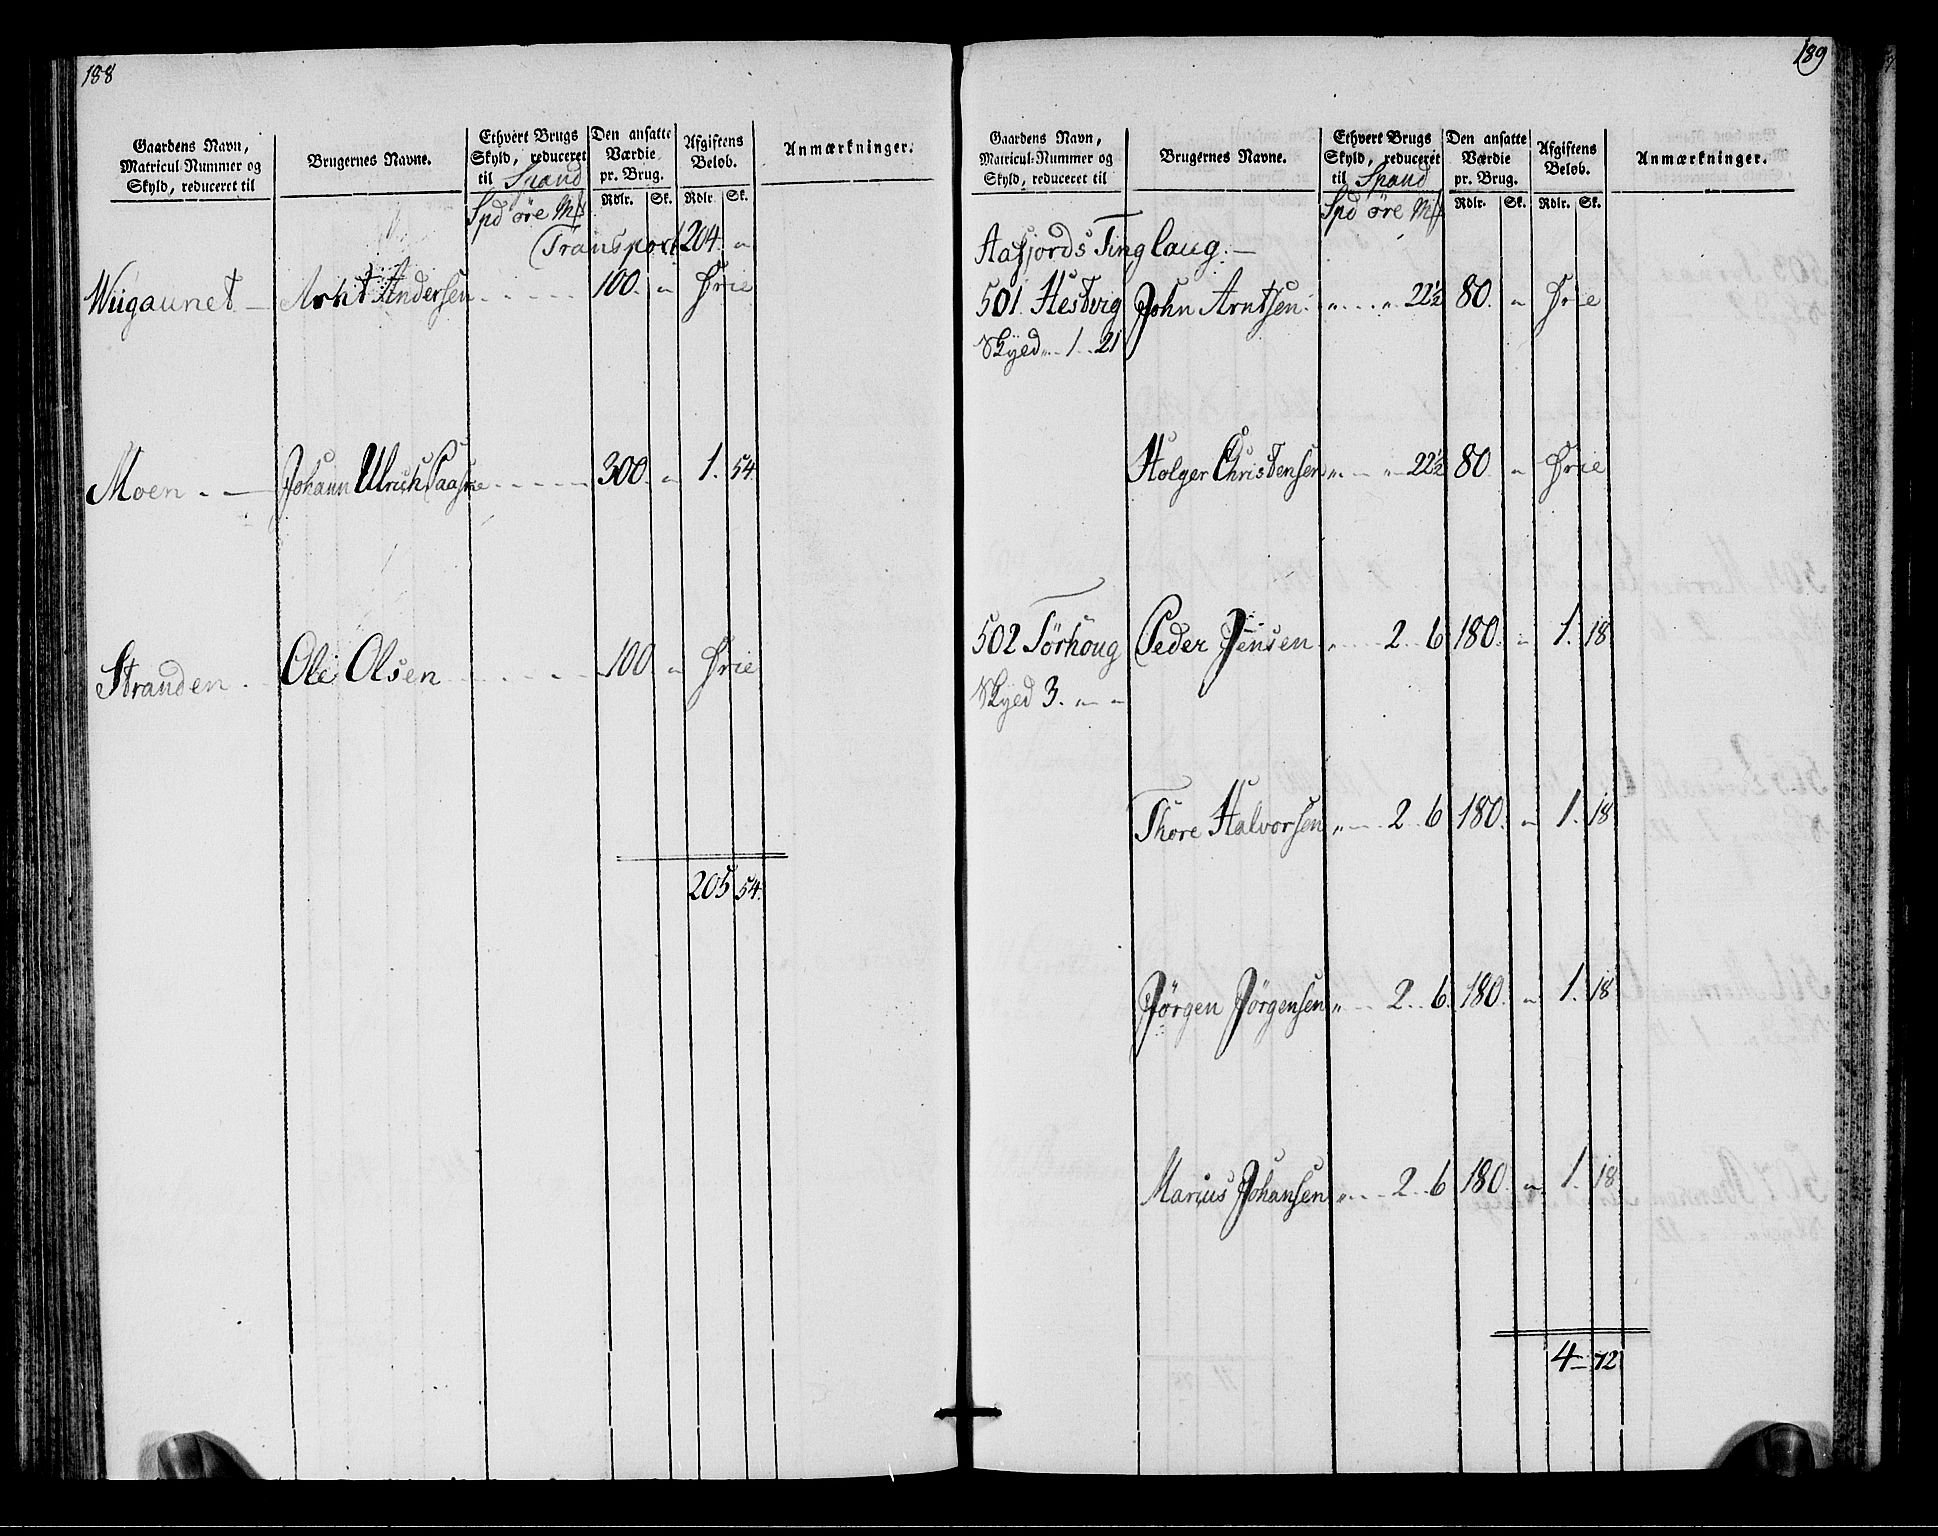 188
Gaardens Navn, Matricul-Nummer og Skyld, reduceret til | Brugernes Navne. | Ethvert Brugs Skyld, reduceret til Spand | Den ansatte Værdie pr. Brug. | Afgiftens Beløb. | Anmærkninger.
Spd öre Mk | Rdlr. | Sk. | Rdlr. | Sk.
Transport 204 "
Wiigaunet — Arnt Andersen 100. " Frie
Moen Johann Ulrich 300. " 1. 54.
Stranden Ole Olsen 100 " Frie
205 54.
189
Gaardens Navn, Matricul-Nummer og Skyld, reduceret til | Brugernes Navne. | Ethvert Brugs Skyld, reduceret til Spand | Den ansatte Værdie pr. Brug. | Afgiftens Beløb. | Anmærkninger.
Spd öre Mk | Rdlr. | Sk. | Rdlr. | Sk.
Aafjords Tinglaug. —
501 Hestvig John Arntsen " " 22½ 80. " Frie
Skyed " 1 21
Holger Christensen " " 22½ 80. " Frie
502 Törhoug Peder Jensen " 2 6 180. " 1. 18
Skyed 3. " "
Thore Halvorsen " 2 6 180. " 1. 18
Jörgen Jörgensen " 2 6. 180. " 1. 18
Marius Johansen " 2 6 180. " 1. 18
4 - 72